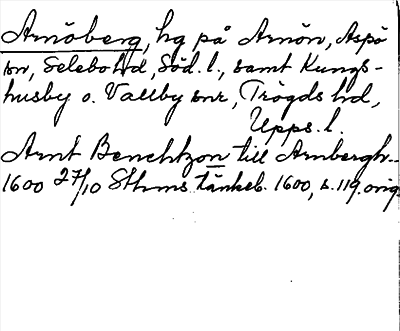 Arnöberg, hg på Arnön, Aspö
sn, Selebo hd, Söd. l., samt Kungs-
husby o. Vallby snr, Trögds hd,
Upps. l.
Arnt Benchtzon till Arnbergh..
1600 27/10 Sthms tänkeb. 1600, s. 119. orig.